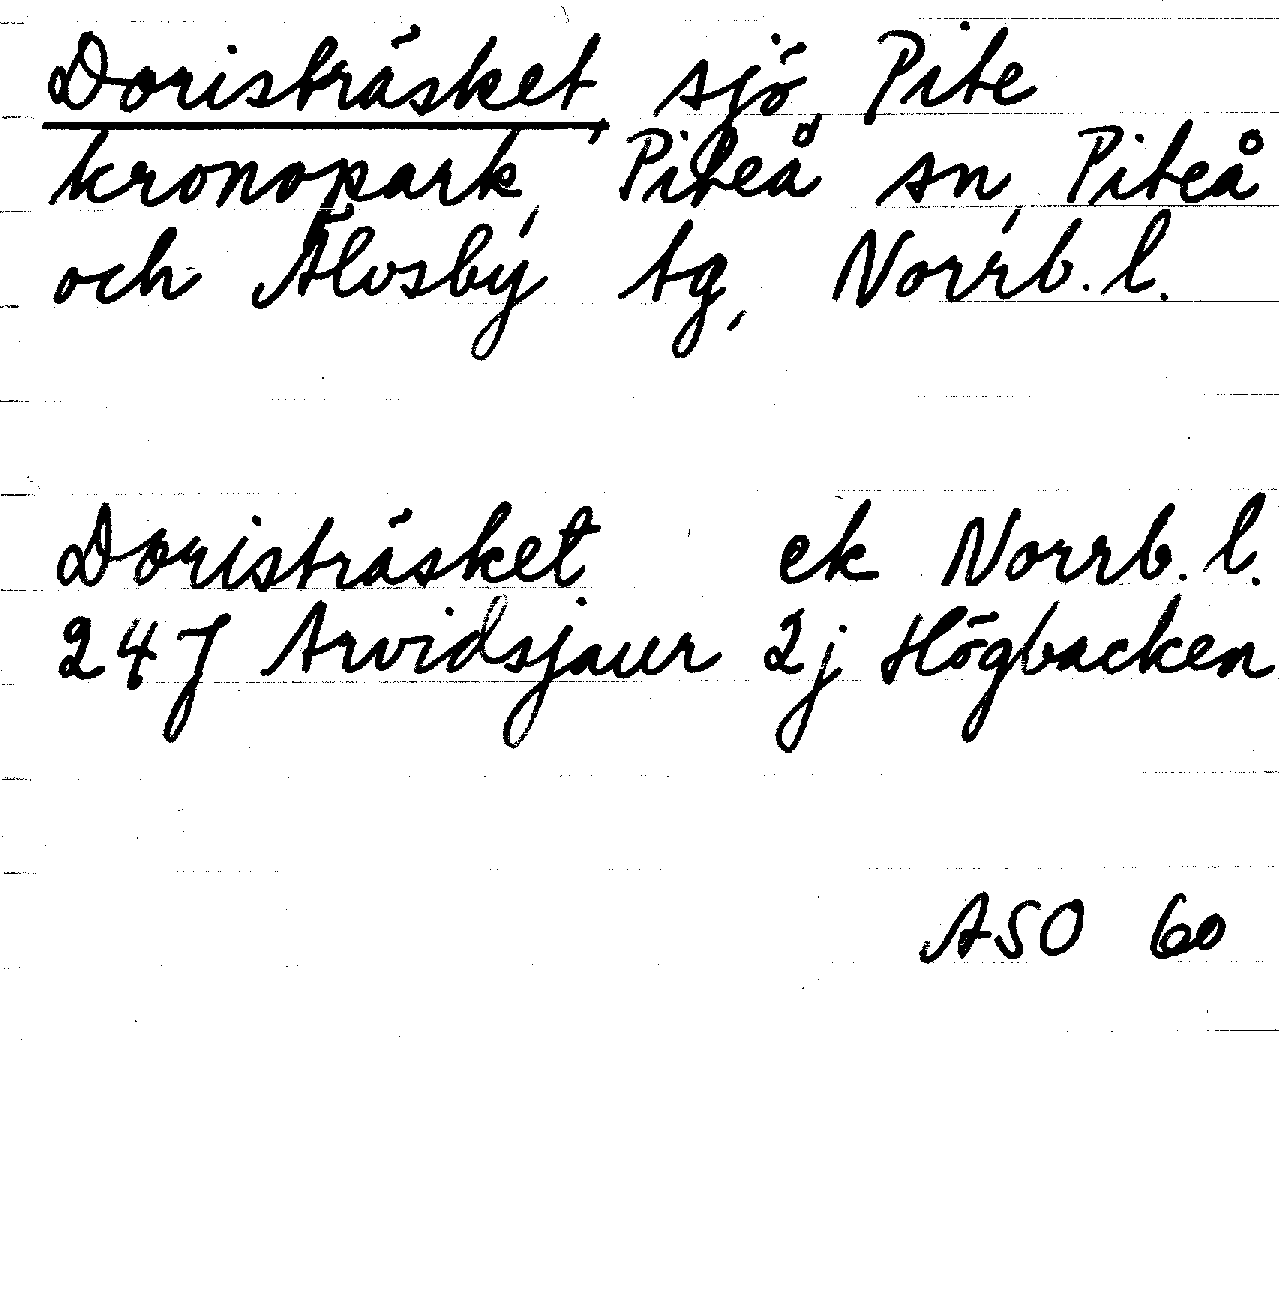 Doristräsket, sjö, Pite
kronopark, Piteå sn, Piteå
och Älvsby tg, Norrb. l.
Doristräsket ek Norrb. l.
247 Arvidsjaur 2j Högbacken
ASO 60